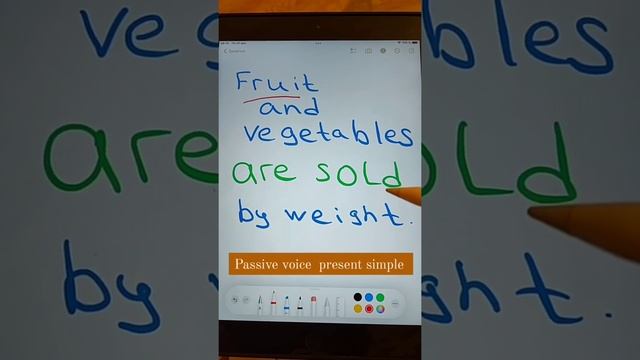 Fruit
and
vegetables
are sold
by weight.
Passive voice present simple